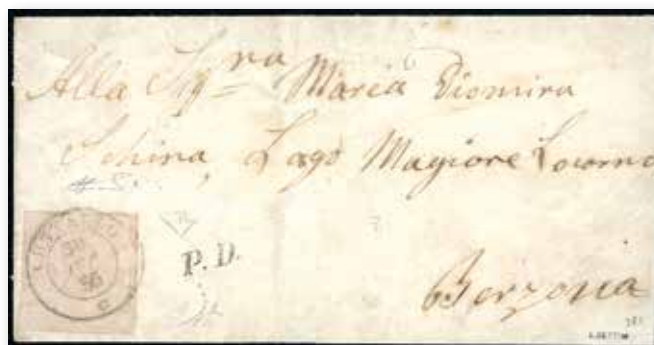 Alla Sig.ra Maria Diomira
Schira, Lago Magiore Locorno
P. D.
Berzona